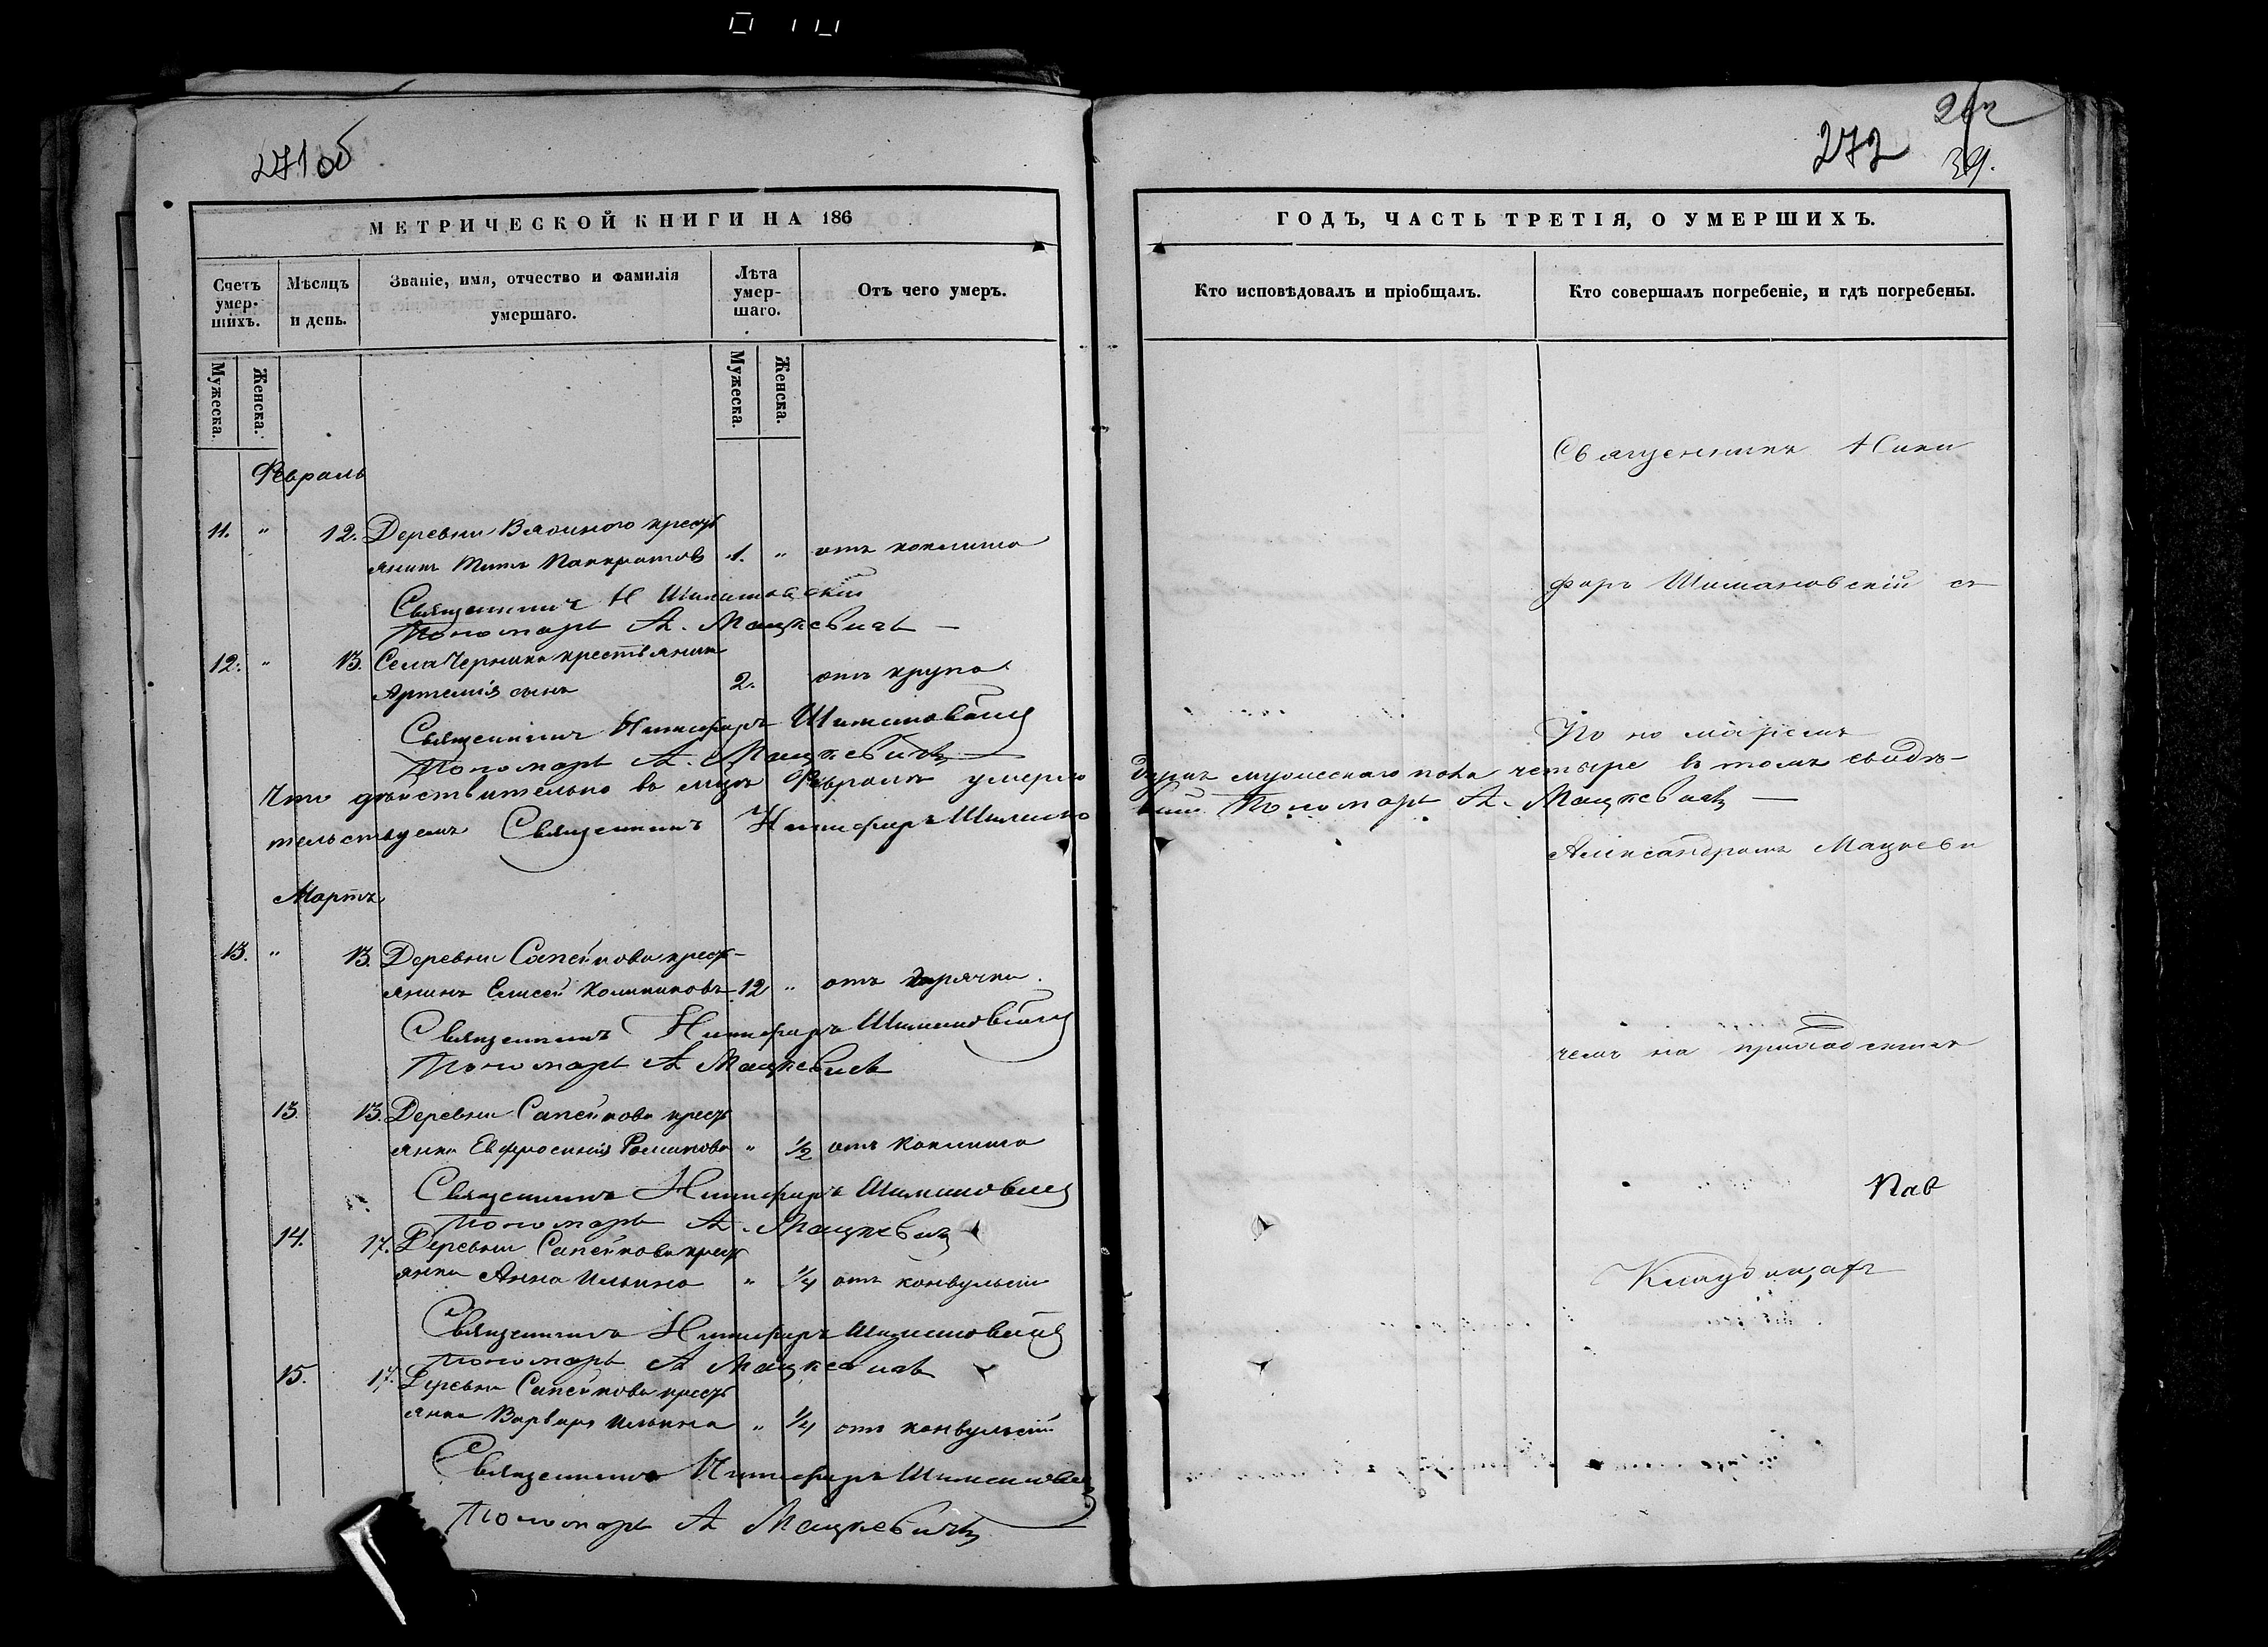 271 об
МЕТРИЧЕСКОЙ КНИГИ НА 186
Счетъ умер-шихъ.
Мѣсяцъ и день.
Званіе, имя, отчество и фамилія умершаго.
Лѣта умер-шаго.
Отъ чего умеръ.
Мужеска.
Женска.
Мужеска.
Женска.
Февраль
11. " 12. Деревни крест
янинъ Титъ Панкратовъ 1. " отъ коклюша
Священникъ Н Шимановскій
Пономарь А. Мацкевичъ
12. " 13. Села крестьянин
Артемія сынъ 2. отъ крупа
Священникъ Никифоръ Шимановскій
Пономарь А. Мацкевичъ
Что дѣйствительно въ мцѣ Февралѣ умерло
тельствуемъ Священникъ Никифоръ Шимано
Мартъ
13. " 13. Деревни Сапейкова крест-
янинъ Елисей 12 " отъ горячки.
Священникъ Никифоръ Шимановскій
Пономарь А Мацкевичъ
13. 13. Деревни Сапейкова крест
янка Евфросинія Романова " 1/2 отъ коклюша
Священникъ Никифоръ Шимановскій
Пономарь А. Мацкевичъ
14. 17. Деревни Сапейкова крест
янка Анна Ильина " 1/4 отъ конвульсіи
Священникъ Никифоръ Шимановскій
Пономарь А Мацкевичъ
15. 17. Деревни Сапейкова крест
янка Варвара Ильина " 1/4 отъ конвульсіи
Священникъ Никифоръ Шимановскій
Пономарь А Мацкевичъ
272
39.
ГОДЪ, ЧАСТЬ ТРЕТІЯ, О УМЕРШИХЪ.
Кто исповѣдовалъ и пріобщалъ.
Кто совершалъ погребеніе, и гдѣ погребены.
Священникъ Ники
форъ Шимановскій съ
Пономаремъ
душъ мужескаго пола четыре въ томъ свидѣ-
Пономарь А. Мацкевичъ
Александромъ Мацкеви
чемъ на приходскихъ
Кладбищахъ